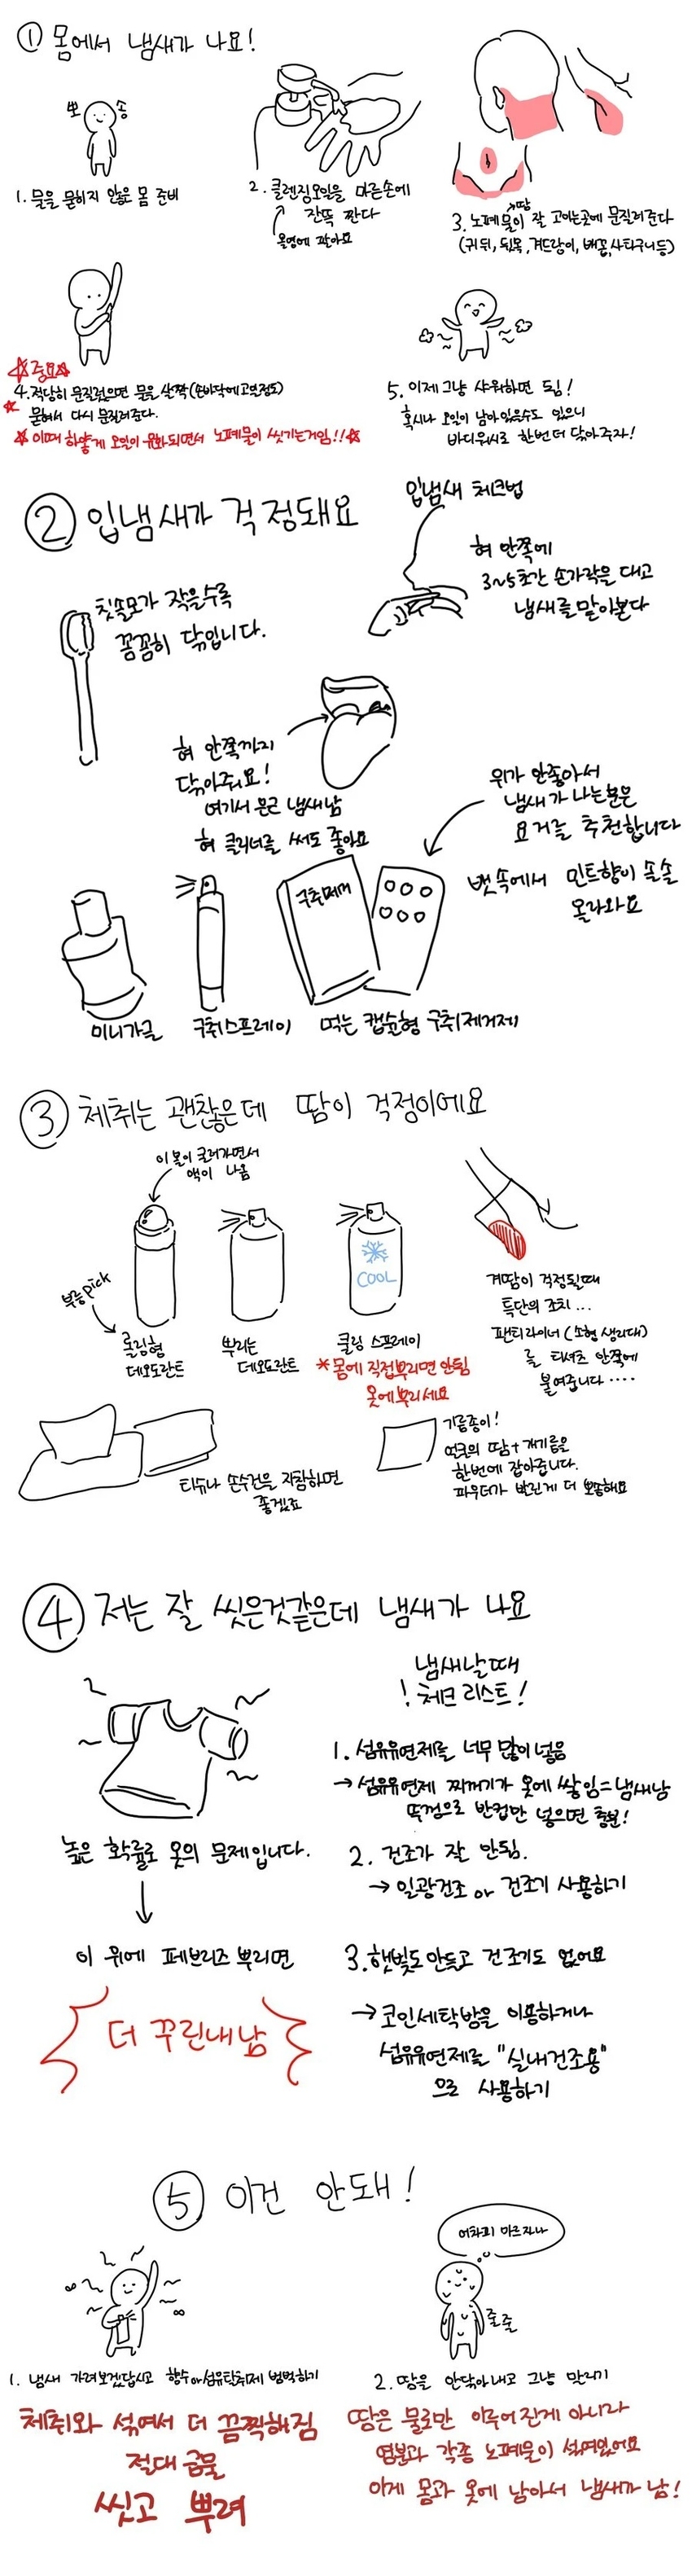 ① 몸에서 냄새가 나요!
뽀 송
1. 물을 묻히지 않은 몸 준비
2. 클렌징오일을 마른손에
잔뜩 짠다
올영에 팔아요
→땀
3. 노폐물이 잘 고이는곳에 문질러준다
(귀 뒤, 뒷목, 겨드랑이, 배꼽, 사타구니등)
☆중요☆
4. 적당히 문질렀으면 물을 살짝(손바닥에고일정도)
묻혀서 다시 문질러준다.
☆이때 하얗게 오일이 유화되면서 노폐물이 씻기는거임!!☆
5. 이제 그냥 샤워하면 됨!
혹시나 오일이 남아있을수도 있으니
바디워시로 한번 더 닦아주자!
② 입냄새가 걱정돼요
입냄새 체크법
혀 안쪽에
3~5초간 손가락을 대고
냄새를 맡아본다
칫솔모가 작을수록
꼼꼼히 닦입니다.
혀 안쪽까지
닦아줘요!
여기서 은근 냄새남
혀 클리너를 써도 좋아요
위가 안좋아서
냄새가 나는분은
요거를 추천합니다
뱃속에서 민트향이 솔솔
올라와요
구취제거
미니가글
구취스프레이
먹는 캡슐형 구취제거제
③ 체취는 괜찮은데 땀이 걱정이에요
이 볼이 굴러가면서
액이 나옴
뿌등pick
롤링형
데오도란트
뿌리는
데오도란트
COOL
쿨링 스프레이
*몸에 직접뿌리면 안됨
옷에뿌리세요
겨땀이 걱정될때
특단의 조치...
팬티라이너(소형 생리대)
를 티셔츠 안쪽에
붙여줍니다....
티슈나 손수건을 지참하면
좋겠죠
기름종이!
얼굴의 땀+개기름을
한번에 잡아줍니다.
파우더가 발린게 더 뽀송해요
④ 저는 잘 씻은것같은데 냄새가 나요
냄새날때
! 체크 리스트!
높은 확률로 옷의 문제입니다.
이 위에 페브리즈 뿌리면
더 꾸린내남
1. 섬유유연제를 너무 많이 넣음
→ 섬유유연제 찌꺼기가 옷에 쌓임=냄새남
뚜껑으로 반컵만 넣으면 충분!
2. 건조가 잘 안됨.
→ 일광건조 or 건조기 사용하기
3. 햇빛도 안들고 건조기도 없어요
→ 코인세탁방을 이용하거나
섬유유연제를 "실내건조용"
으로 사용하기
⑤ 이건 안돼!
1. 냄새 가려보겠답시고 향수or섬유탈취제 범벅하기
체취와 섞여서 더 끔찍해짐
절대 금물
씻고 뿌려
어차피 마르자나
줄줄
2. 땀을 안닦아내고 그냥 말리기
땀은 물로만 이루어진게 아니라
염분과 각종 노폐물이 섞여있어요
이게 몸과 옷에 남아서 냄새가 남!